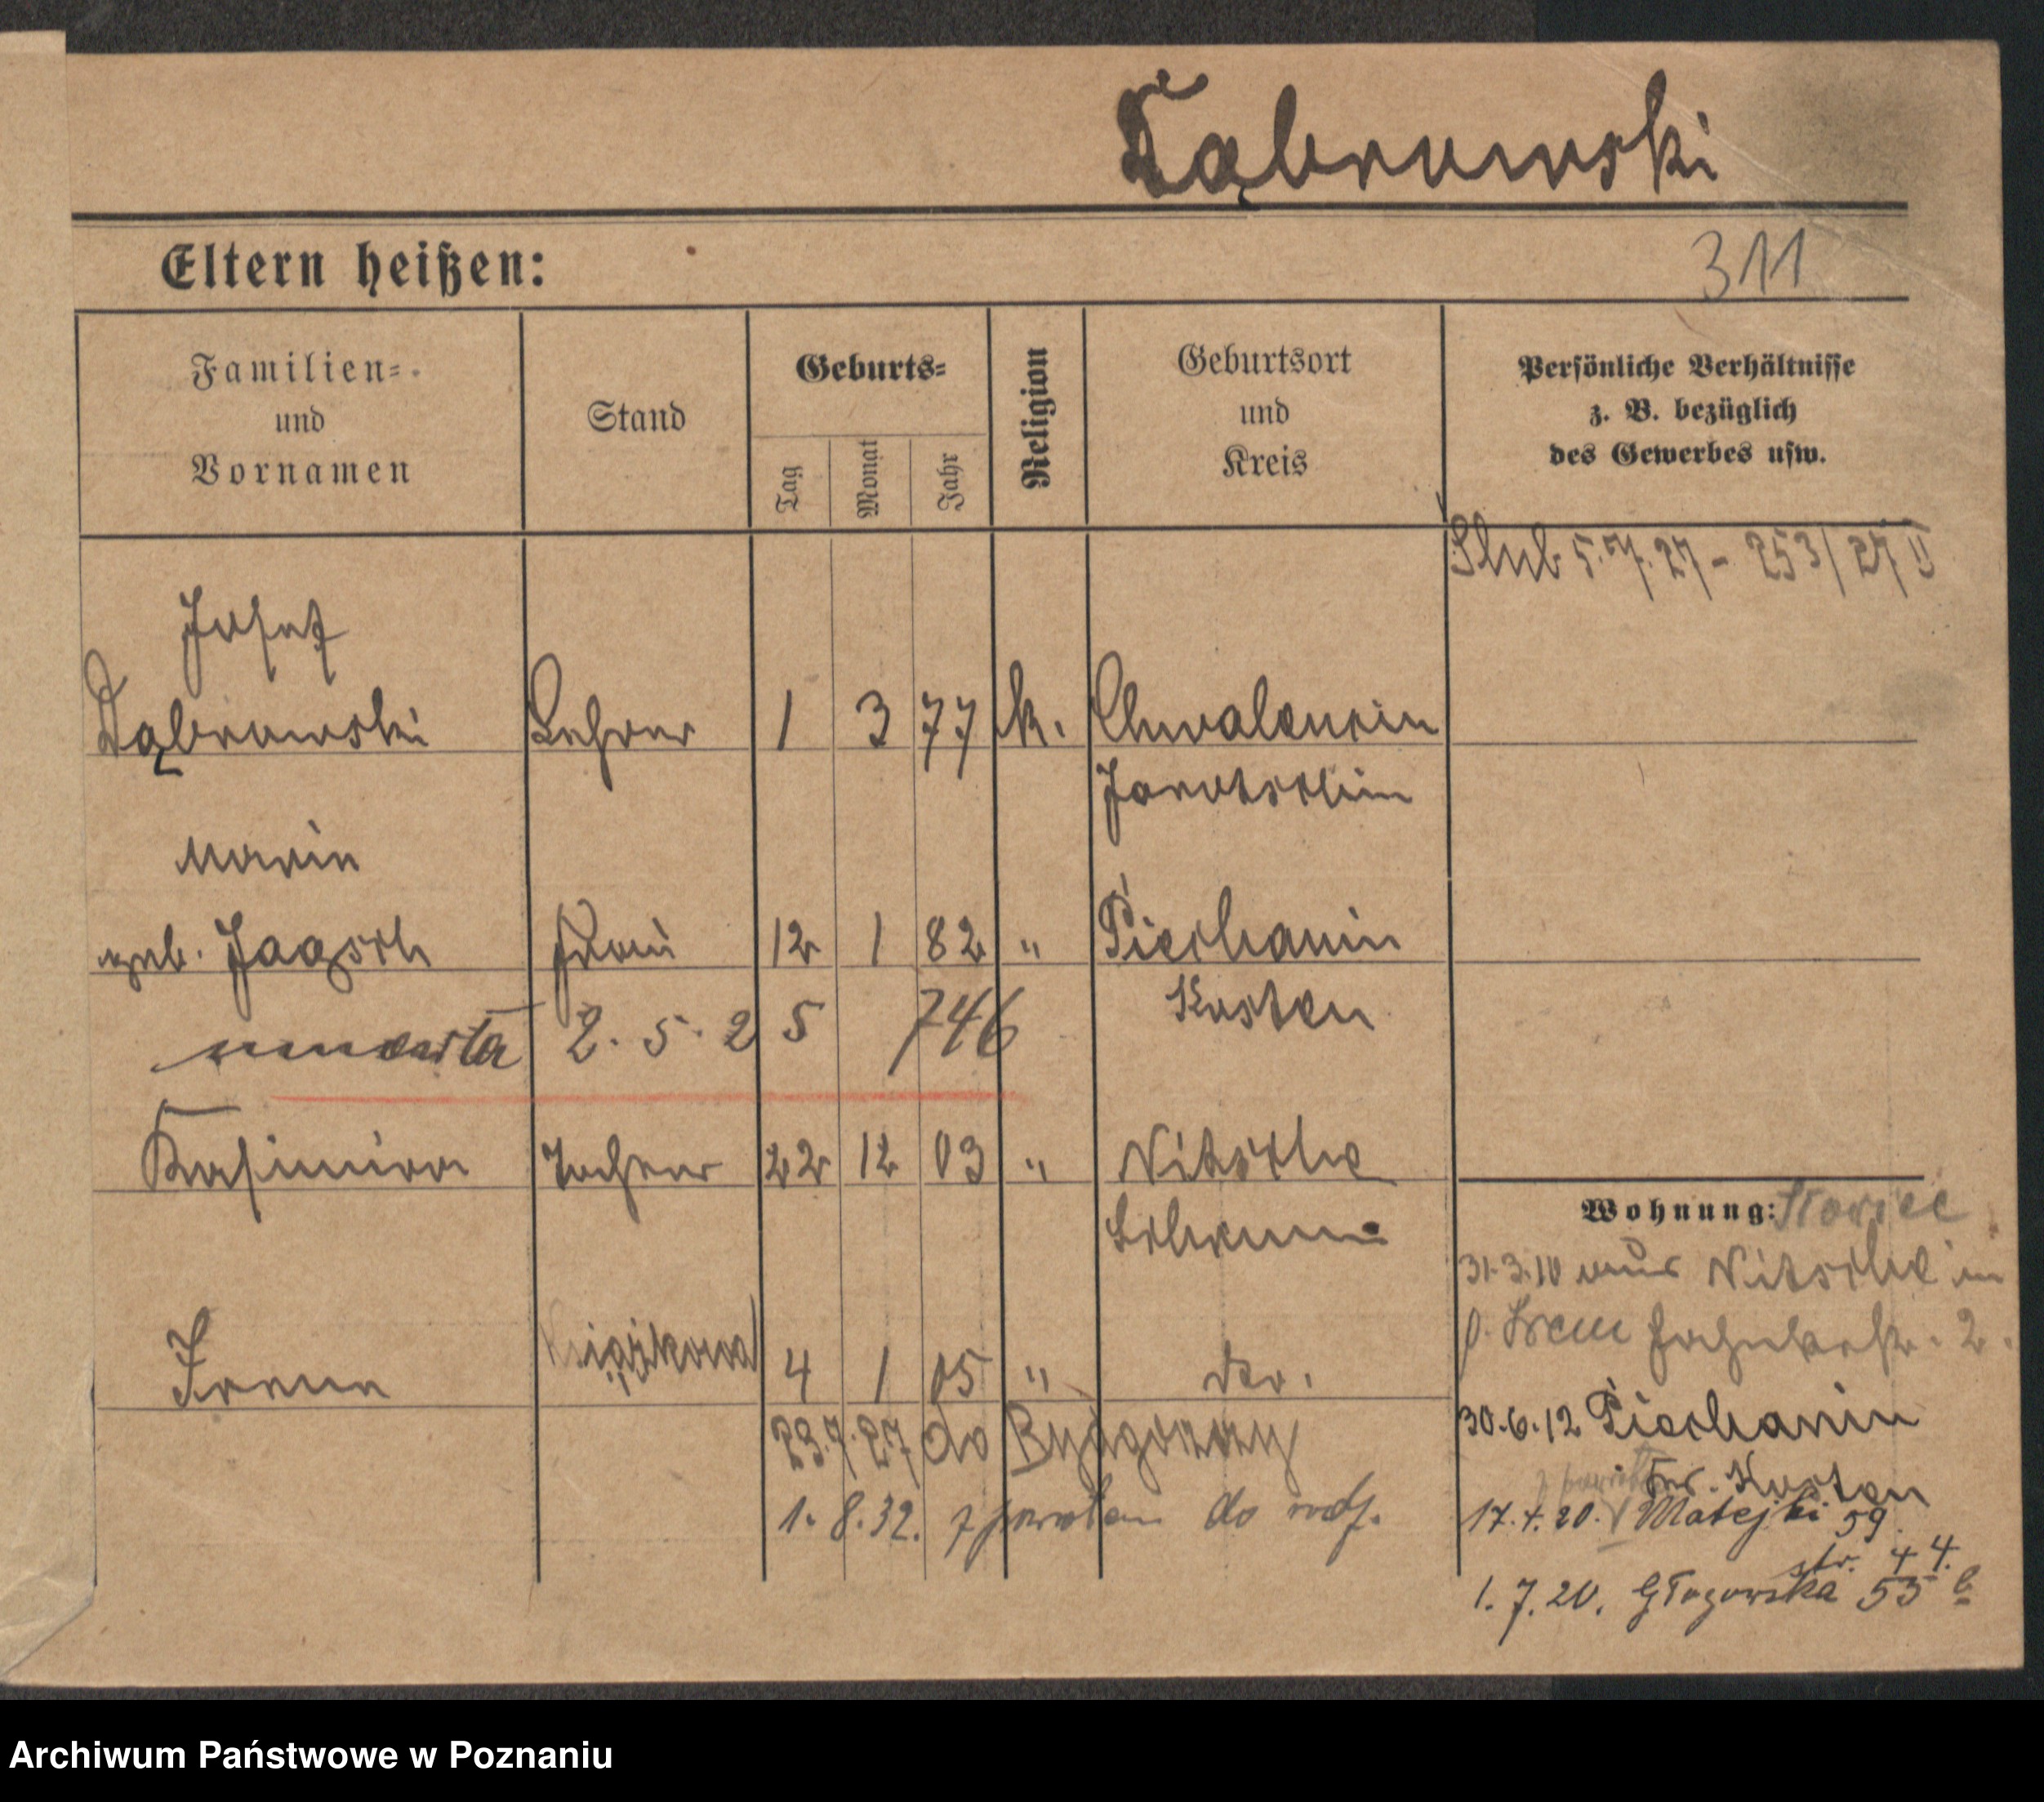 Dąbrowski
Eltern heißen:
311
Familien-
und
Vornamen
Stand
Geburts-
Tag
Monat
Jahr
Religion
Geburtsort
und
Kreis
Persönliche Verhältnisse
z. B. bezüglich
des Gewerbes usw.
Ślub 5.7.27 - 253/27 II
Josef
Dąbrowski Lehrer 1 3 77 k.
Jarotschin
Maria
geb. Frau 12 1 82 " Piechanin
Kosten
zmarła 2.5.25 746
Kasimira 22 12 03 " Nitsche
Wohnung:
31.3.10 aus Nitsche in
30.6.12 Piechanin
Kr. Kosten
Irene 4 1 05 " do.
23.7.27 do Bydgoszczy
1.8.32. z powrotem do rodz.
17.4.20. Matejki 59.
str. 44.
1.7.20. Głogowska 53 b
Archiwum Państwowe w Poznaniu